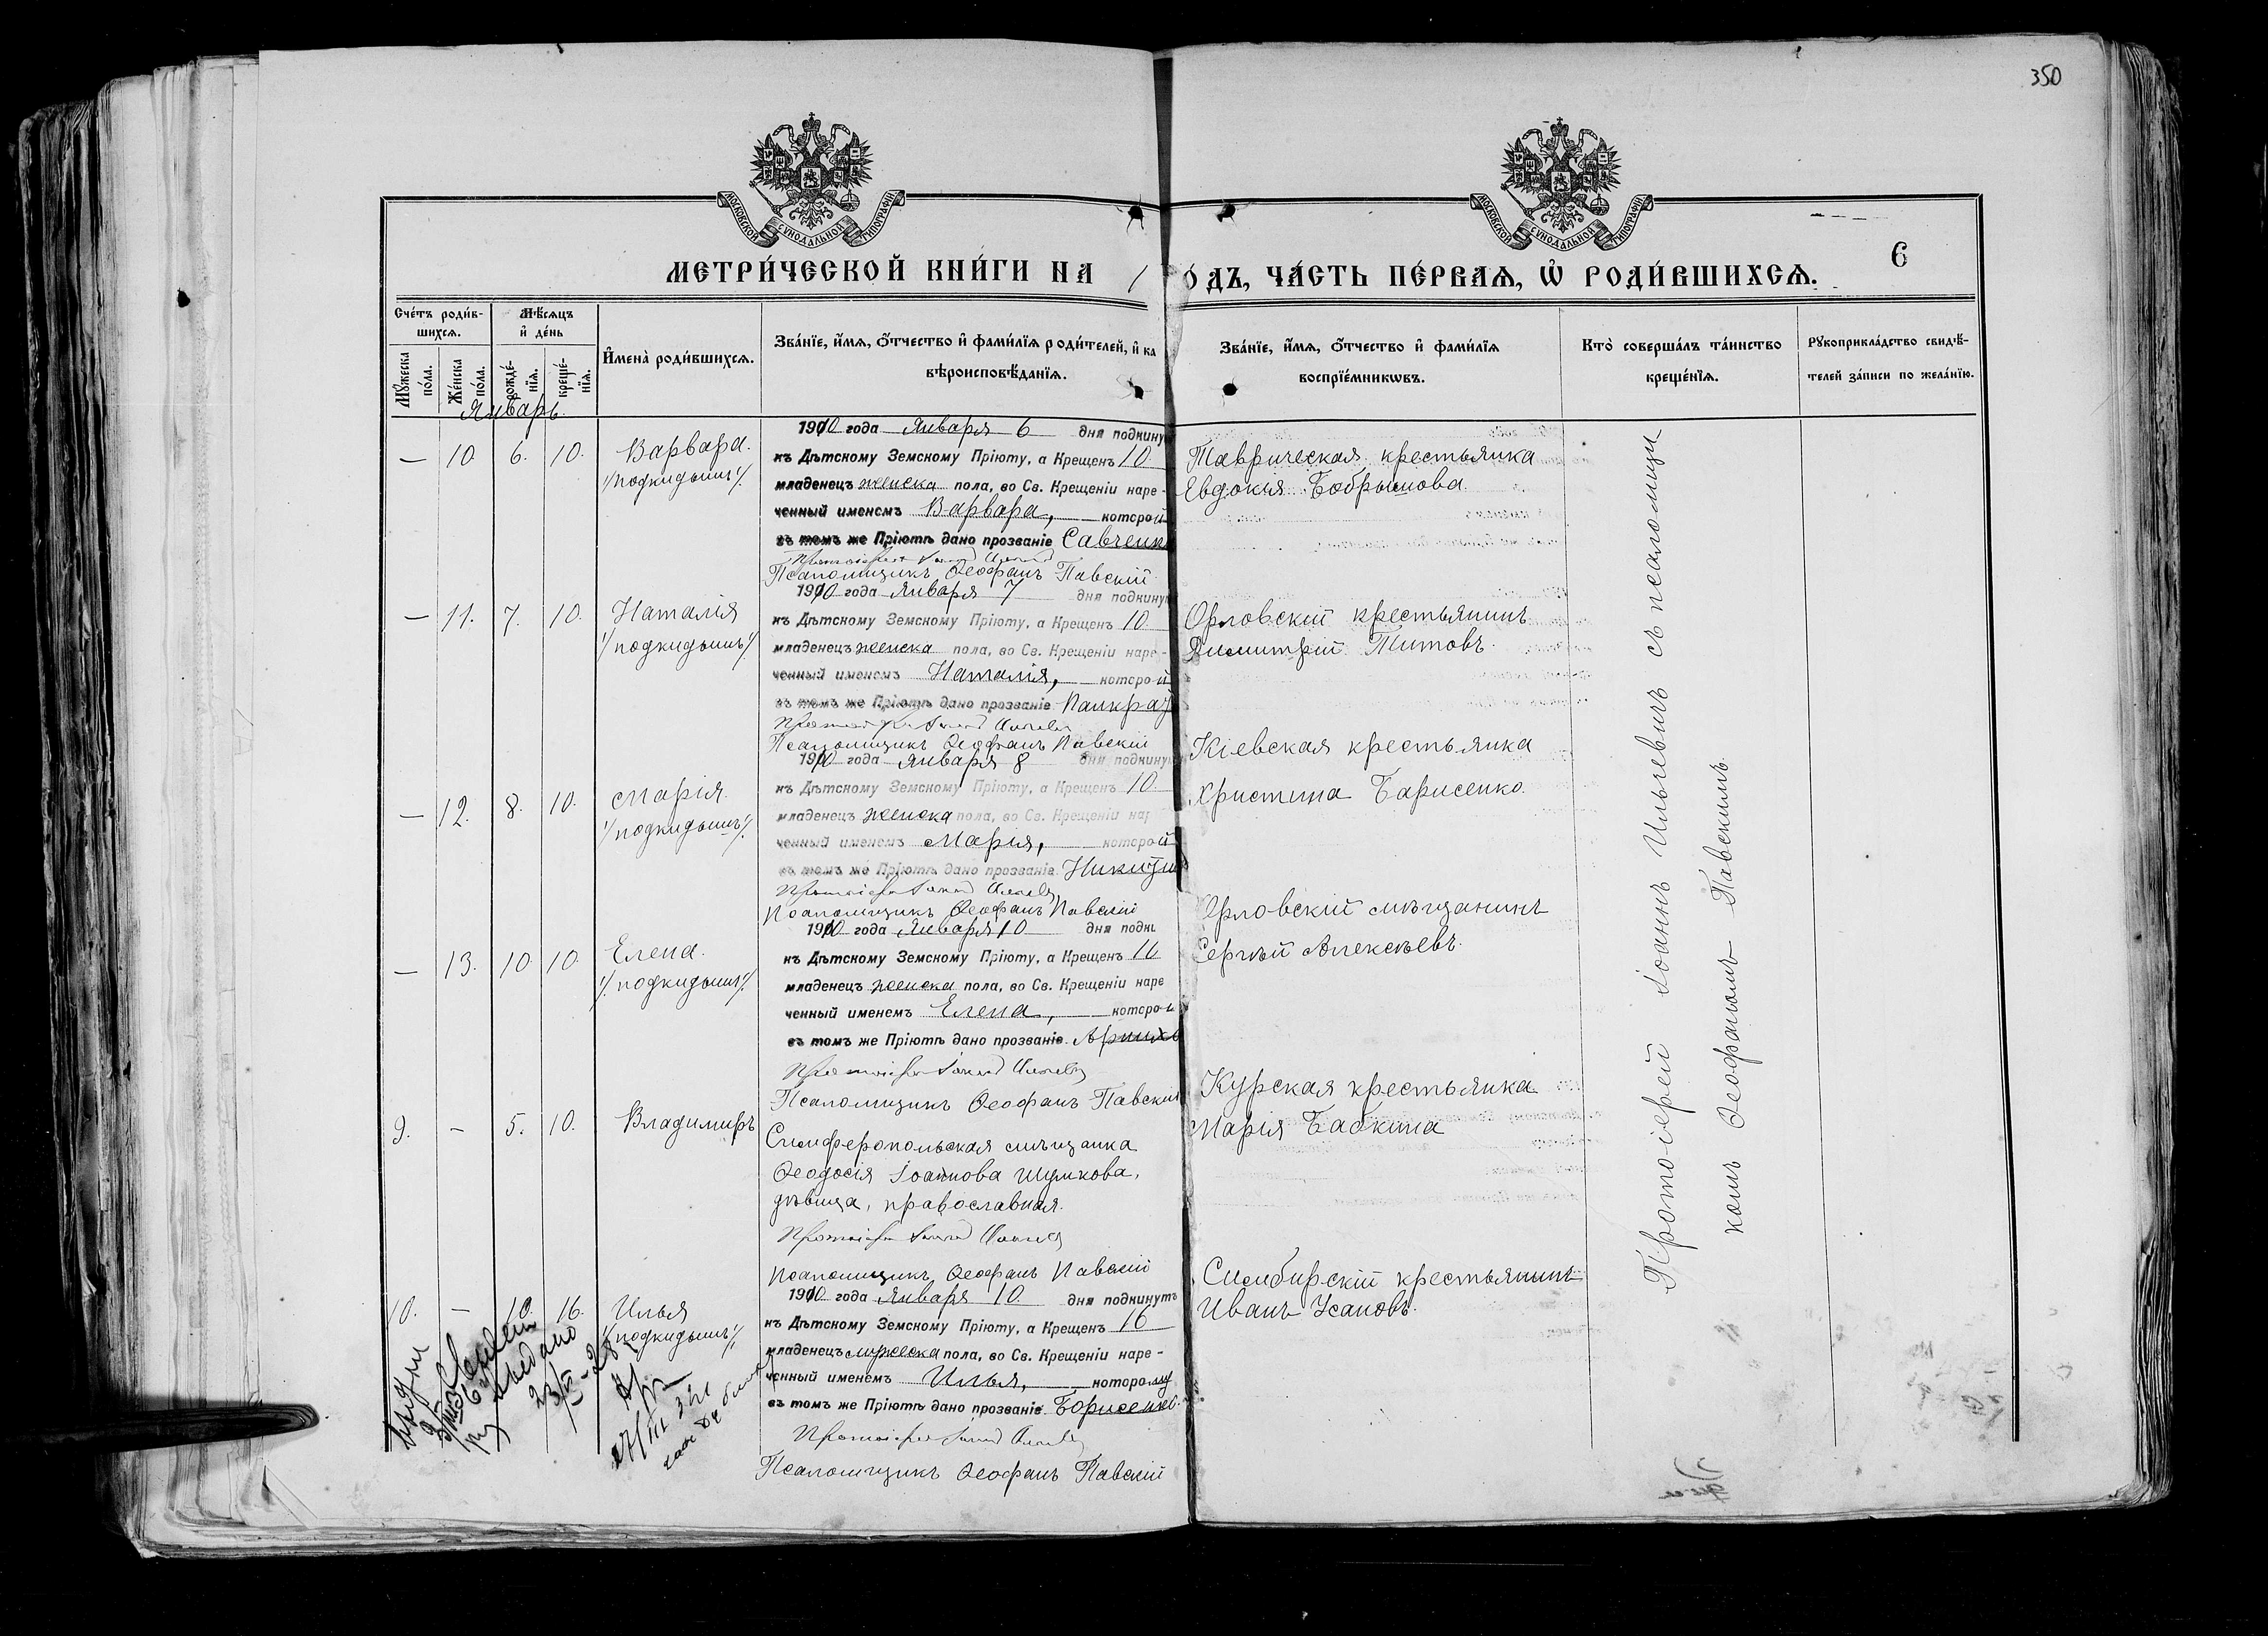 350
МОСКОВСКОЙ СУНОДАЛЬНОЙ ТИПОГРАФІИ
МОСКОВСКОЙ СУНОДАЛЬНОЙ ТИПОГРАФІИ
6
МЕТРИ́ЧЕСКОЙ КНИ́ГИ НА 1 О́ДЪ, ЧА́СТЬ ПЕ́РВАѦ, Ѡ РОДИ́ВШИХСѦ.
Сче́тъ роди́в-
шихсѧ.
Мѣ́сѧцъ
и҆ де́нь
Мꙋ́жеска
по́ла.
Же́нска
по́ла.
рожде́-
нїѧ.
креще́-
нїѧ.
И҆мена̀ роди́вшихсѧ.
Зва́нїе, и҆́мѧ, ѻ҆́тчество и҆ фами́лїѧ роди́телей, и҆ ка
вѣроисповѣ́данїѧ.
Зва́нїе, и҆́мѧ, ѻ҆́тчество и҆ фами́лїѧ
воспрїе́мникѡвъ.
Кто̀ соверша́лъ та́инство
креще́нїѧ.
Рꙋкоприкла́дство свидѣ́-
телей за́писи по жела́нїю.
Январь
— 10 6. 10. Варвара.
/подкидышъ/.
1910 года Января 6 дня подкину
къ Дѣтскому Земскому Пріюту, а Крещенъ 10
младенецъ женска пола, во Св. Крещеніи наре-
ченный именемъ Варвара, которой
въ томъ же Пріютѣ дано прозваніе Савченк
Псаломщикъ Ѳеофанъ Павскій
Таврическая крестьянка
Евдокія
— 11. 7. 10. Наталія
/подкидышъ/.
1910 года Января 7 дня подкину
къ Дѣтскому Земскому Пріюту, а Крещенъ 10
младенецъ женска пола, во Св. Крещеніи наре-
ченный именемъ Наталія, которой
въ томъ же Пріютѣ дано прозваніе Панкра
Псаломщикъ Ѳеофанъ Павскій
Орловскій крестьянинъ
Димитрій Титовъ.
— 12. 8. 10. Марія.
/подкидышъ/.
1910 года Января 8 дня подкину
къ Дѣтскому Земскому Пріюту, а Крещенъ 10.
младенецъ женска пола, во Св. Крещеніи нар
ченный именемъ Марія, которой
въ томъ же Пріютѣ дано прозваніе
Псаломщикъ Ѳеофанъ Павскій
Кіевская крестьянка
Христина Барисенко.
— 13. 10 10. Елена.
/подкидышъ/.
1910 года Января 10 дня подки
къ Дѣтскому Земскому Пріюту, а Крещенъ 10
младенецъ женска пола, во Св. Крещеніи наре
ченный именемъ Елена, которой
въ томъ же Пріютѣ дано прозваніе
Псаломщикъ Ѳеофанъ Павскій
Орловскій мѣщанинъ
Сергѣй Алексѣевъ.
9. – 5. 10. Владимиръ
Симферопольская мѣщанка
Ѳеодосія Іоаннова Шумкова,
дѣвица, православная.
Псаломщикъ Ѳеофанъ Павскій
Курская крестьянка
Марія Бабкина
10. – 10. 16. Илья
/подкидышъ/.
1910 года Января 10. дня подкинутъ
къ Дѣтскому Земскому Пріюту, а Крещенъ 16
младенецъ мужеска пола, во Св. Крещеніи наре-
ченный именемъ Илья, которому
въ томъ же Пріютѣ дано прозваніе
Псаломщикъ Ѳеофанъ Павскій
Симбирскій крестьянинъ
Иванъ Усановъ.
Протоіерей Іоаннъ Ильичевичъ съ псаломщи
комъ Ѳеофаномъ Павскимъ.